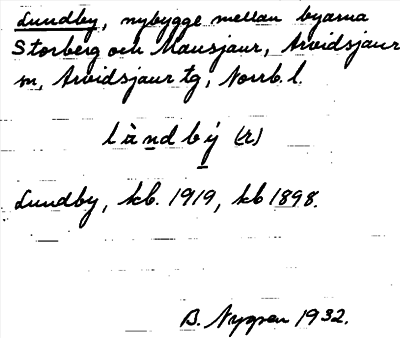 Lundby, nybygge mellan byarna
Storberg och Mausjaur, Arvidsjaur
sn, Arvidsjaur tg, Norrb. l.
làndbý (r)
Lundby, kb. 1919, kb 1898.
B. Nygren 1932.